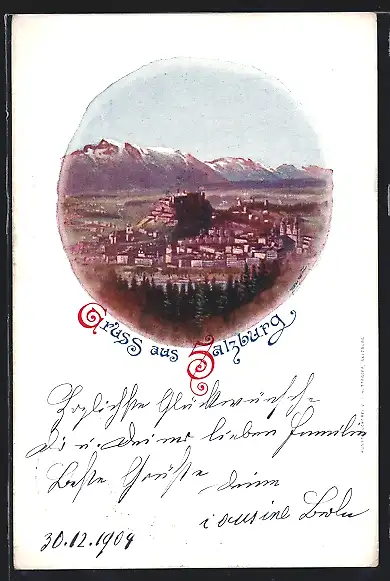 Gruss aus Salzburg
Herzlichste Glückwünsche
Dir u. Deiner lieben Familie
Beste Grüsse Deine
Cousine
30.12.1904